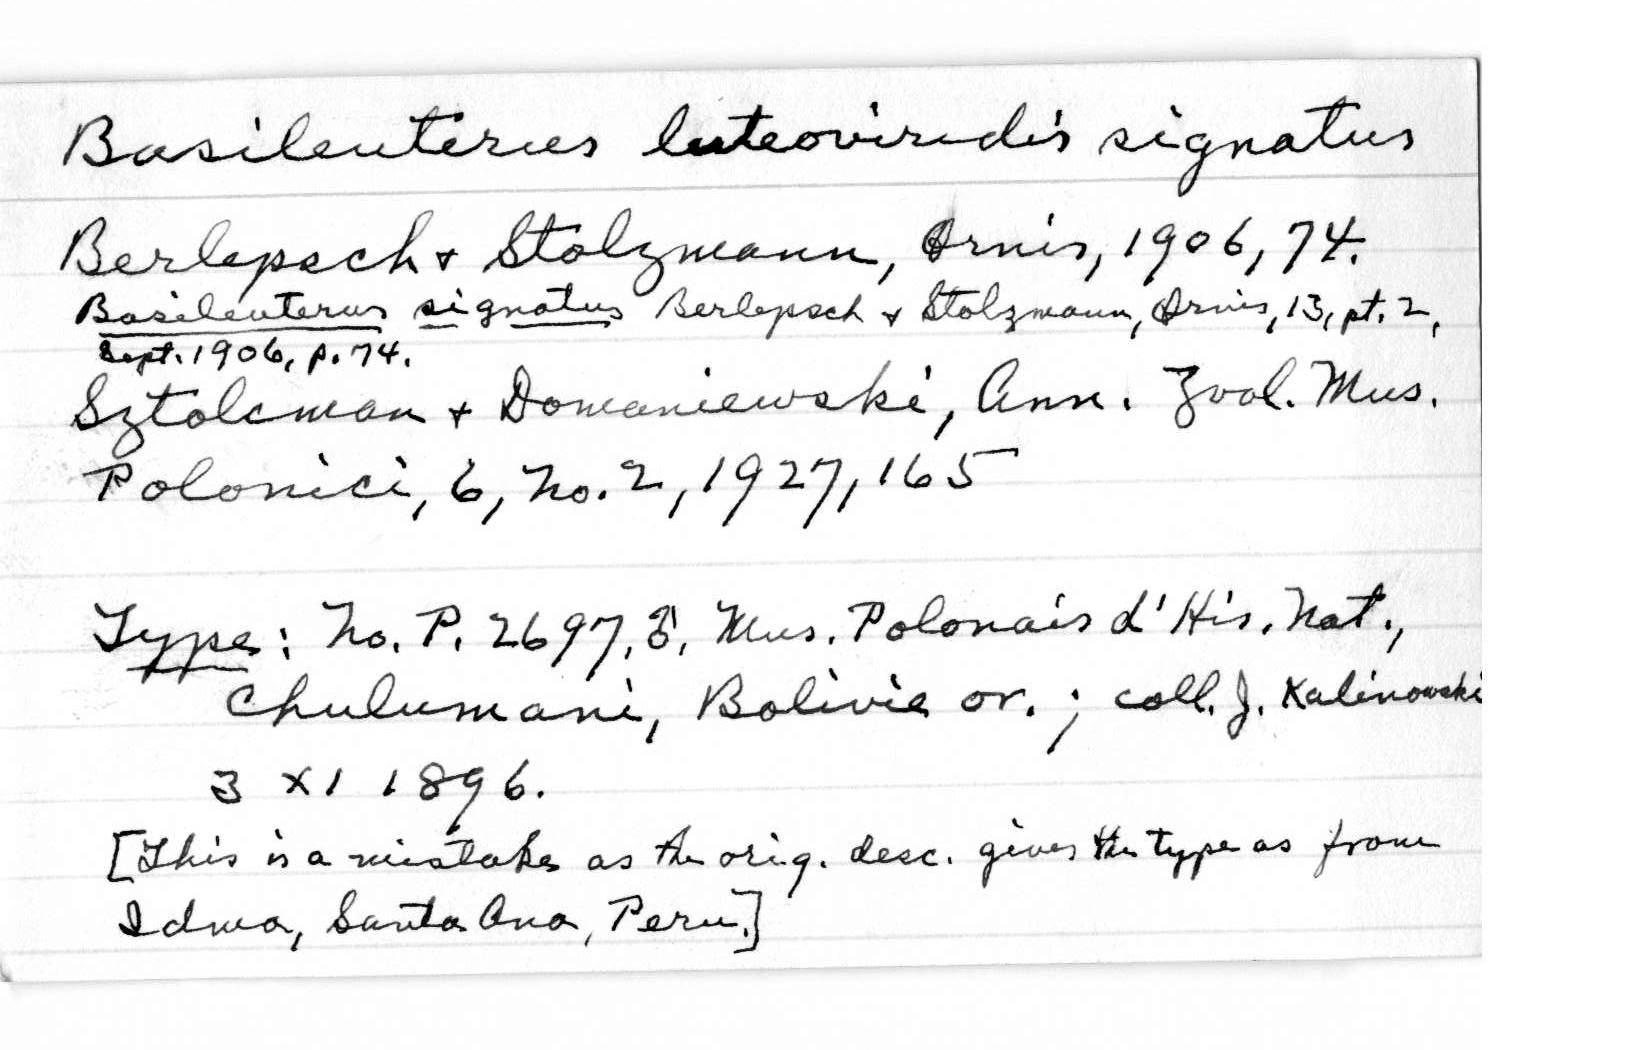 Basileuterus luteoviridis signatus
Berlepsch & Stolzmann, Ornis, 1906, 74.
Basileuterus signatus Berlepsch & Stolzmann, Ornis, 13, pt. 2,
Sept. 1906, p. 74.
Sztolcman & Domaniewski, Ann. Zool. Mus.
Polonici, 6, No. 2, 1927, 165
Type: No. P. 2697, ♂, Mus. Polonais d'His. Nat.,
Chulumani, Bolivie or. ; coll. J. Kalinowski
3 XI 1896.
[This is a mistake as the orig. desc. gives the type as from
Idma, Santa Ana, Peru.]